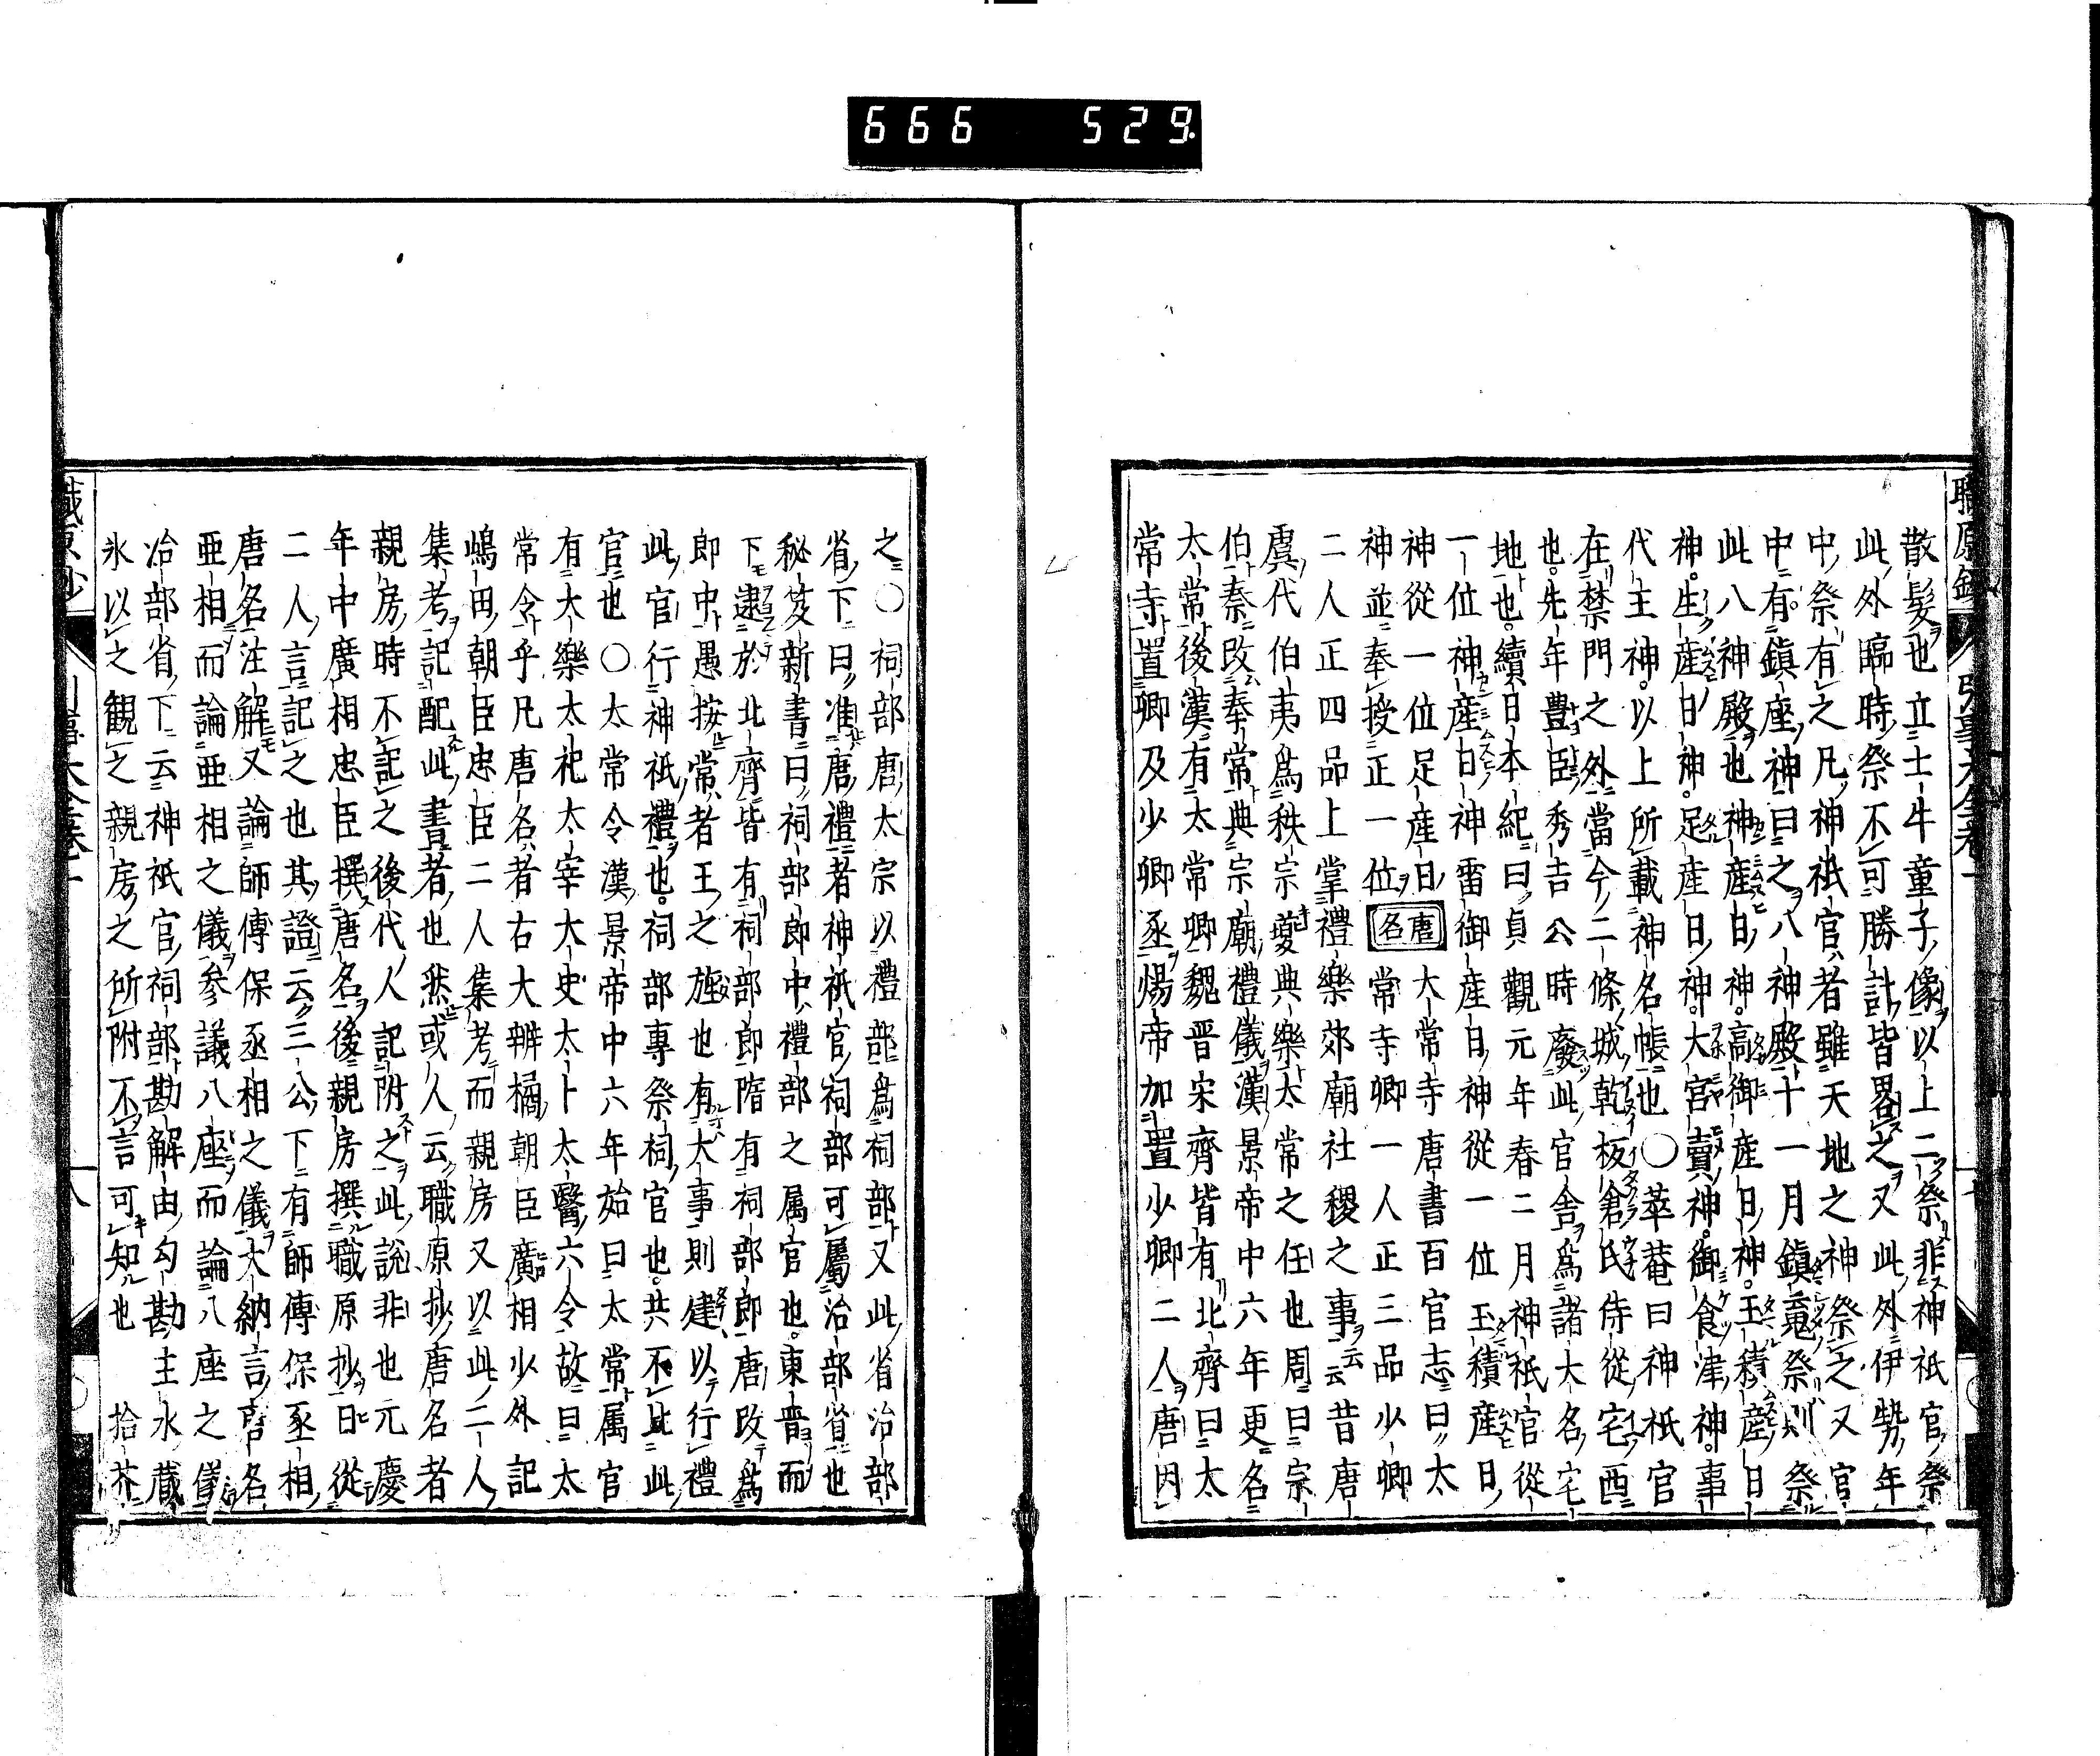 666 529
散髮也立士牛童子像以上二祭非神祇官祭
此外臨時祭不可勝計皆畧之又此外伊勢年
中祭有之凡神祇官者雖天地之神祭之又官
中有鎮座神曰之八神殿十一月鎮魂祭則祭
此八神殿也神産日神高御産日神玉積産日
神生産日神足産日神大宮賣神御食津神事
代主神以上所載神名帳也〇萃菴曰神祇官
在禁門之外當今二條城乾板倉氏侍從宅西
也先年豊臣秀吉公時廢此官舎爲諸大名宅
地也續日本紀曰貞觀元年春二月神祇官從
一位神産日神雷御産日神從一位玉積産日
神從一位足産日唐名大常寺唐書百官志曰太
神並奉授正一位常寺卿一人正三品少卿
二人正四品上掌禮樂郊廟社稷之事云昔唐
虞代伯夷爲秩宗夔典樂太常之任也周曰宗
伯秦改奉常典宗廟禮儀漢景帝中六年更名
太常後漢有太常卿魏晋宋齊皆有北齊曰太
常寺置卿及少卿丞煬帝加置少卿二人唐因
之〇祠部唐太宗以禮部爲祠部又此省治部
省下曰准唐禮者神祇官祠部可屬治部省也
秘笈新書曰祠部郎中禮部之属官也東晋而
下逮於北齊皆有祠部郎隋有祠部郎唐改爲
郎中愚按常者王之旌也有大事則建以行禮
此官行神祇禮也祠部專祭祠官也共不此此
官也〇太常令漢景帝中六年始曰太常属官
有太樂太祀太宰大史太卜太醫六令故曰太
常令乎凡唐名者右大辨橘朝臣廣相少外記
嶋田朝臣忠臣二人集考而親房又以此二人
集考記配此書者也然或人云職原抄唐名者
親房時不記之後代人記附之此說非也元慶
年中廣相忠臣撰唐名後親房撰職原抄日從
二人言記之也其證云三公下有師傅保丞相
唐名注解又論師傅保丞相之儀大納言唐名
亜相而論亜相之儀参議八座而論八座之儀
治部省下云神祇官祠部勘解由勾勘主水蔵
氷以之観之親房之所附不言可知也 拾芥